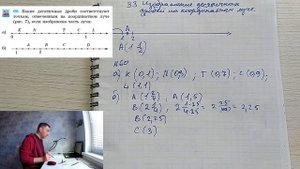 60. Какие десятичные дроби соответствуют
точкам, отмеченным на координатном луче
(рис. 7), если изображена часть луча:
3.3. Изображение десятичных
дробей на координатном луче.
A (1
N60
а) K (0,1); N(0,4) , T (0,7); C (0,9);
L (1,1)
б) A (1 2/4) A (1,5)
B (2 1/4), 2 1·25/4·25 = 2 25/100 = 2,25
B (2,25)
C (3)